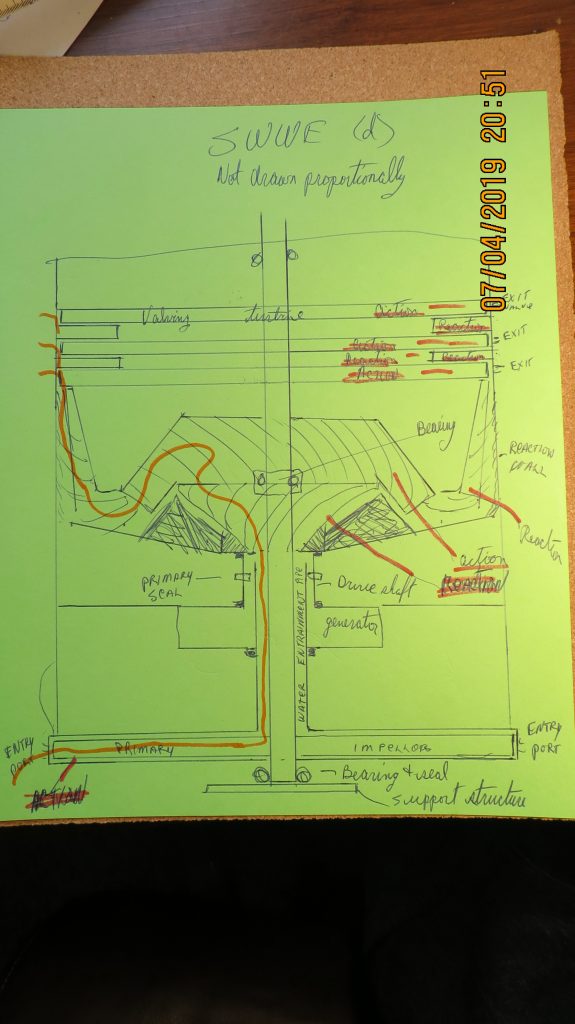 07/04/2019 20:51
SWWE (d)
Not drawn proportionally
EXIT VALVE
Valving turbine Action
Reaction
EXIT
Action
Reaction Reaction
EXIT
Action
Bearing
REACTION
Reaction
action
REACTION
PRIMARY
SEAL
Drive shaft
generator
WATER ENTRAINMENT PIPE
ENTRY
PORT
PRIMARY
IMPELLORS
ENTRY
PORT
ACTION
Bearing & seal
support structure